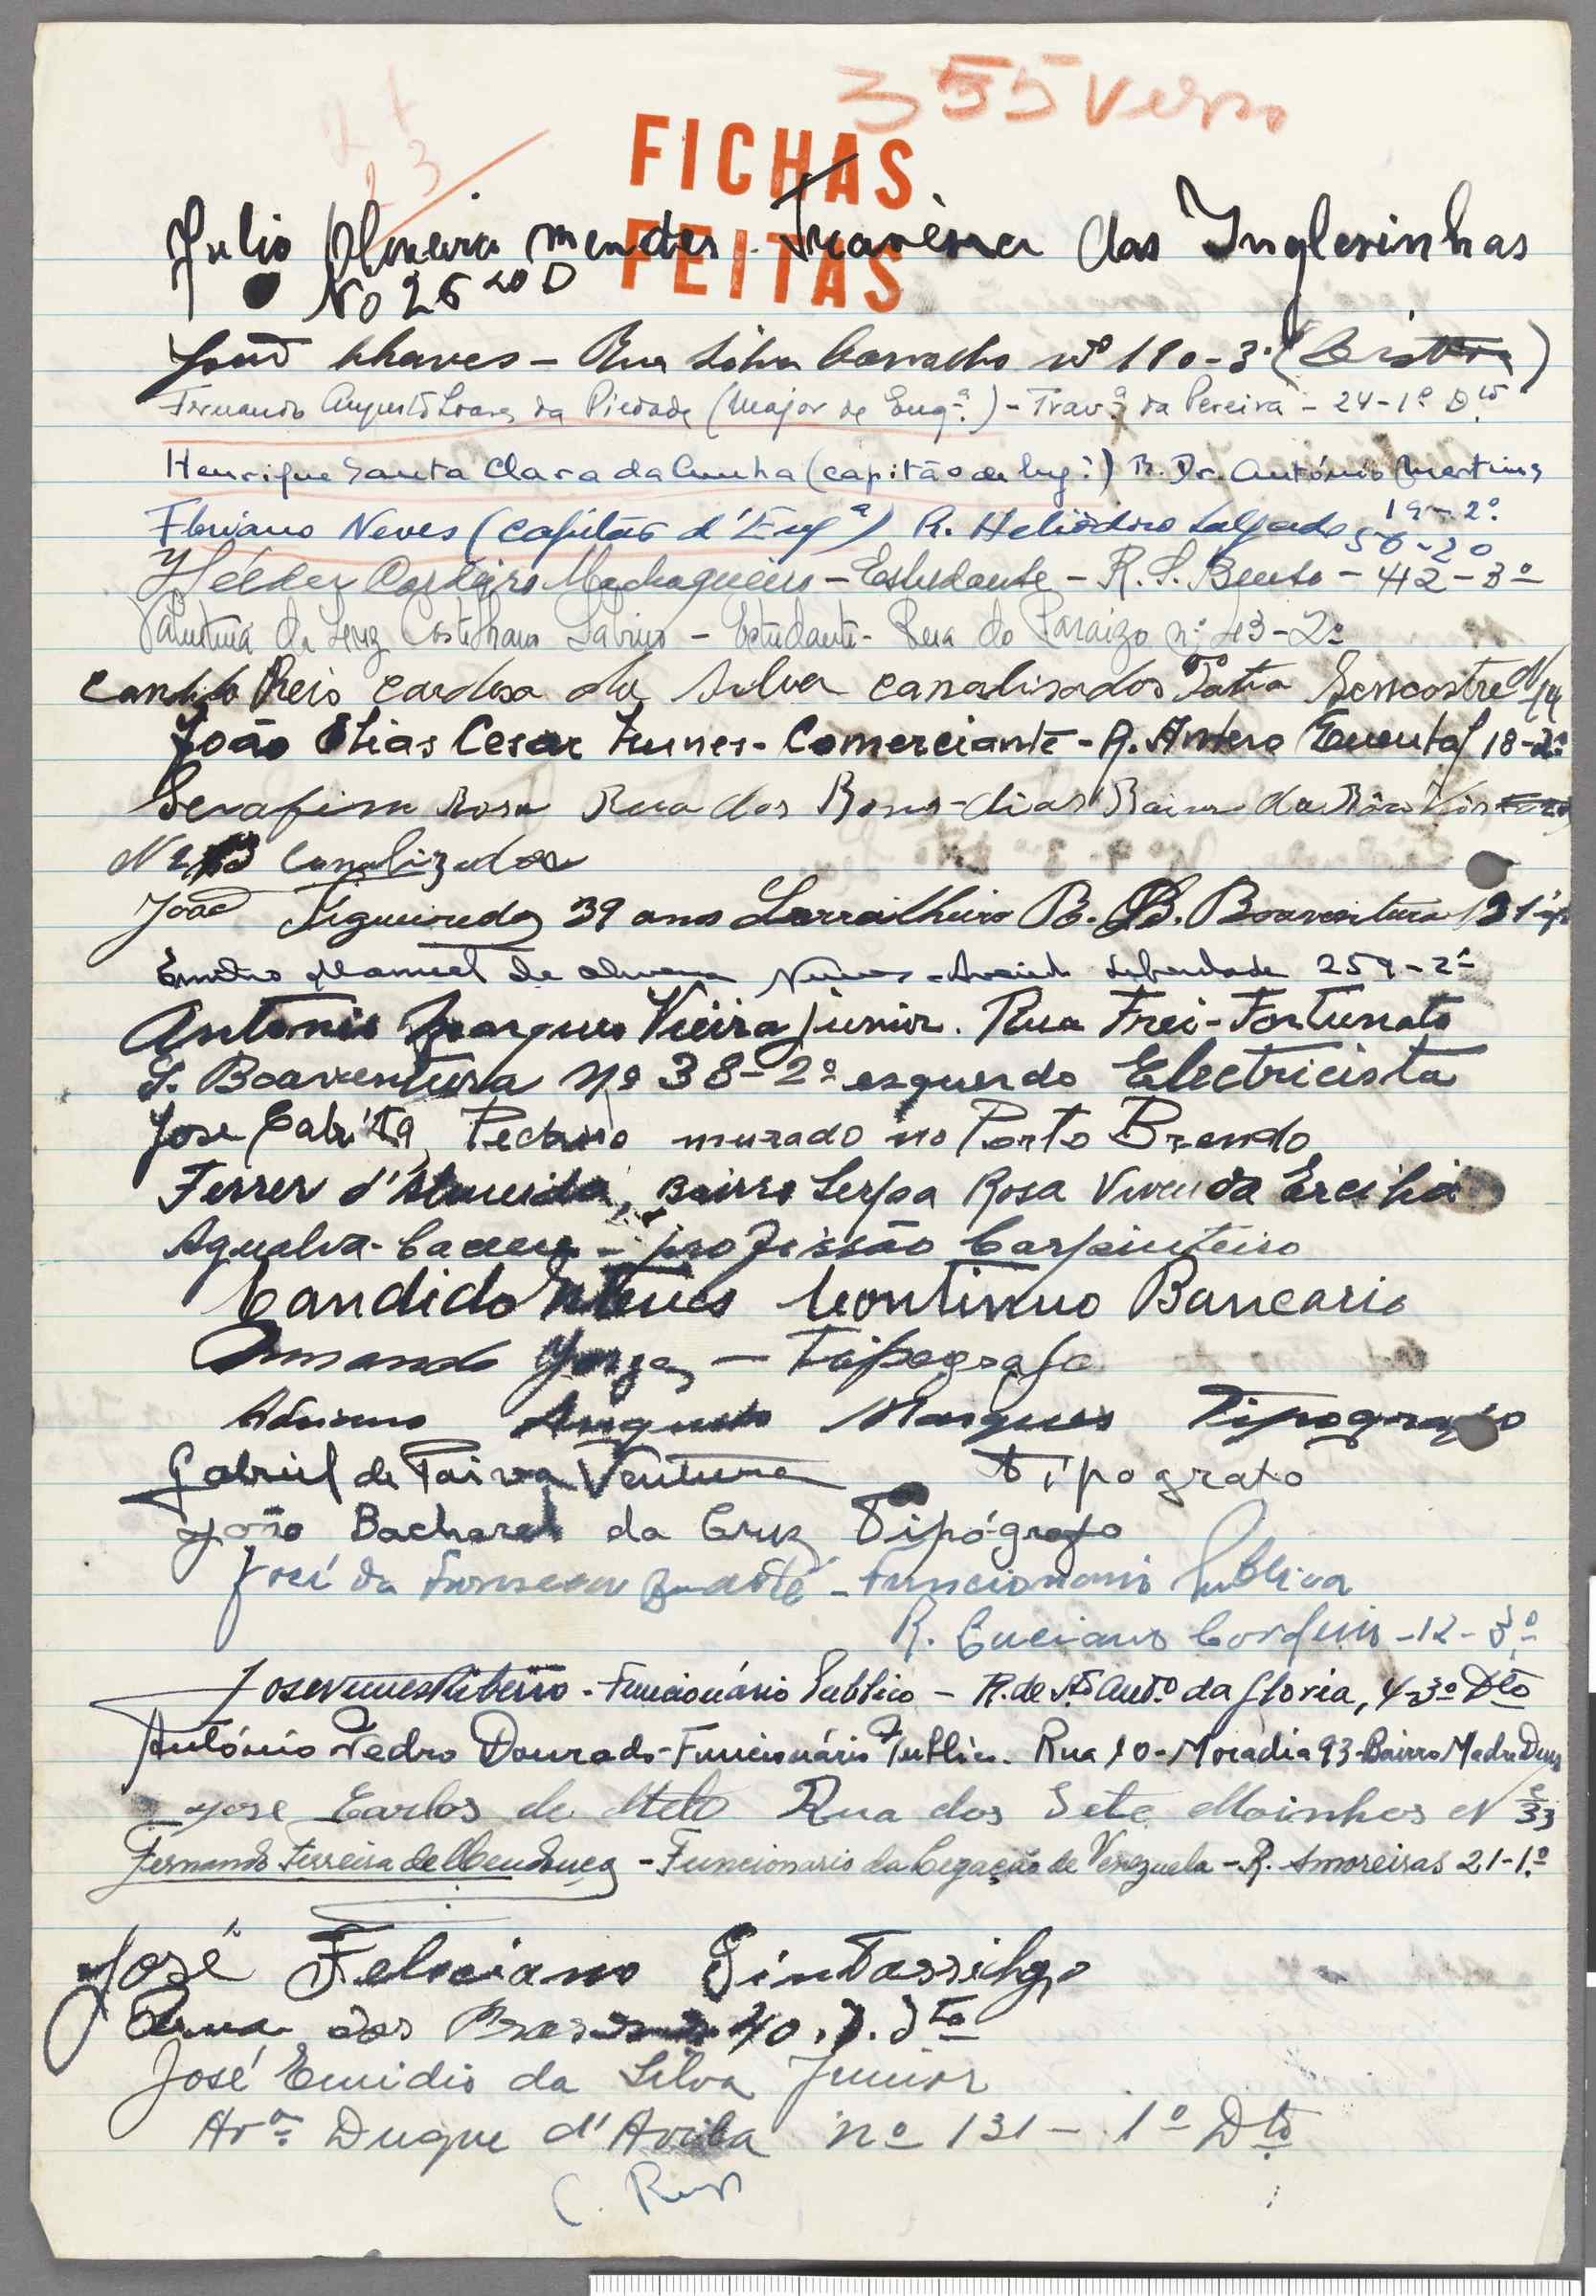 355 Verso
FICHAS
FEITAS
Julio Oliveira Mendes. Travèssa das Inglesinhas
No 26 20 D
José Chaves - Rua Silva Carvalho nº 180-3º
Fernando Augusto Soares da Piedade (Major de Engª.) - Travª da Pereira - 24-1º Dto
Henrique Santa Clara da Cunha (capitão de Engª.) R. Dr. António Martins
19-2º.
Floriano Neves (capitão d'Engª) R. Heliodoro Salgado 50-20
Hélder Cordeiro Machaqueiro - Estudante - R. S. Bento - 42-3º
da Luz Castelhano Sabino - Estudante - Rua do Paraizo nº 43-2º
Candido Reis Cardoso da Silva canalisador Patio
João Elias Cesar Funes - Comerciante - R. Antero Quental 18-2º
Serafim Rosa Rua dos Bons-dias Bairro da Bôa Vista
Canalizador
João Figueiredo 39 anos Serralheiro Boaventura 131
Manuel de Oliveira Nunes - Avenida Liberdade 259-2º
Antonio Marques Vieira Junior. Rua Frei-Fortunato
S. Boaventura Nº 38-2º esquerdo Electricista
Jose Cabrita, Pedreiro murado no Porto Brando
Ferrer d'Almeida, Bairro Serpa Rosa Vivenda Ercilia
Agualva-Cacem - profissão Carpinteiro
Candido Esteves Continuo Bancario
Armando Jorge - Tipografo
Adriano Augusto Marques Tipografo
Gabriel de Paiva Ventura tipografo
João Bacharel da Cruz Tipógrafo
José da Fonseca Duarte - Funcionario Publico
R. Luciano Cordeiro - 12-3º
José Nunes Ribeiro - Funcionário Publico - R. de Stº Antº. da Gloria, 4-3º Dto
António Pedro Dourado - Funcionário Publico. Rua 10-Moradia 93-Bairro Madre Deus
Jose Carlos de Melo Rua dos Sete Moinhos Nº 33
Fernando Ferreira de Mendonça - Funcionario da Legação de Venezuela - R. Amoreiras 21-1.º
José Feliciano Sintassilgo
Rua das 40. Dto
José Emidio da Silva Junior
Avª. Duque d'Avila nº 131 - 1º Dto